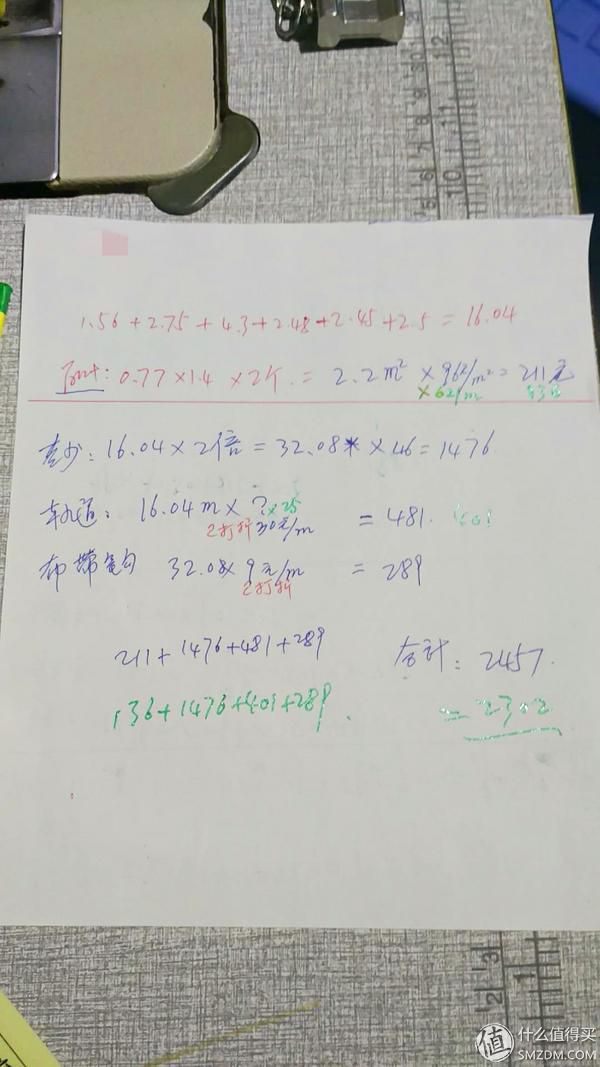 1.56+2.75+4.3+2.48+2.45+2.5=16.04
0.77×1.4×2个.=2.2m²×96元/m²=211元
×62/m²
窗纱:16.04×2倍=32.08米×46=1476
轨道:16.04m×?×25=481. 401
2打折30元/m
布带挂勾 32.08×9元/m=289
2打折
211+1476+481+289 合计:2457.
136+1476+401+289. =2302
12 11 10 9 8 7 6 5
10 11 12
3 2
1
值 什么值得买
SMZDM.COM